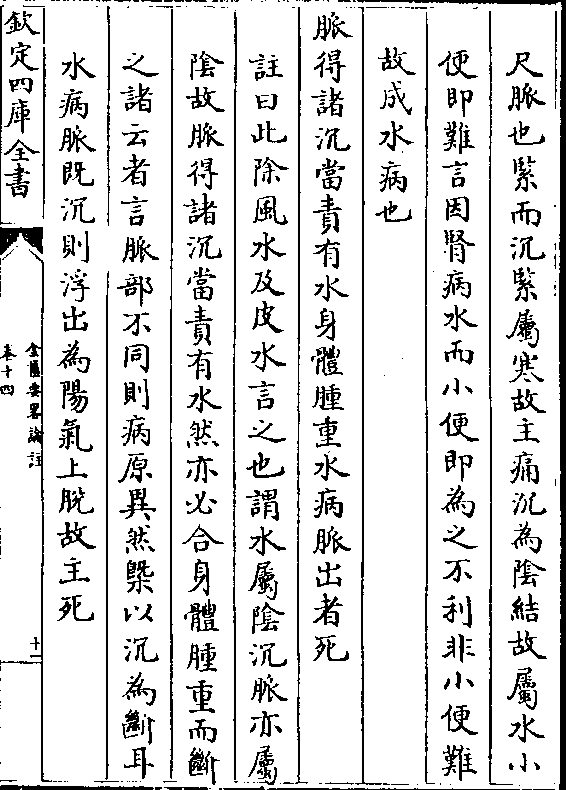 尺脈也緊而沉緊屬寒故主痛沉為陰結故屬水小
便即難言因腎病水而小便即為之不利非小便難
故成水病也
脈得諸沉當責有水身體腫重水病脈出者死
註曰此除風水及皮水言之也謂水屬陰沉脈亦屬
陰故脈得諸沉當責有水然亦必合身體腫重而斷
之諸云者言脈部不同則病原異然槩以沉為斷耳
水病脈既沉則浮出為陽氣上脫故主死
欽定四庫全書
金匱要畧論註
卷十四
十一